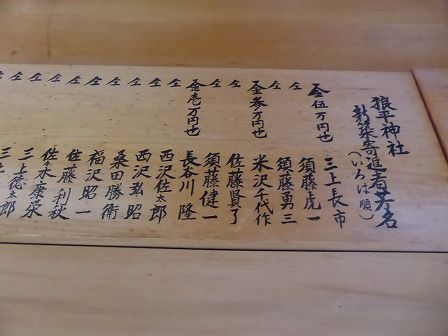 狼平神社
新築寄進者芳名
(いろは順)
金伍万円也 三上長市
左 須藤虎一
左 須藤勇三
金参万円也 米沢千代作
左 佐藤賢了
左 須藤健一
金壱万円也 長谷川隆
左 西沢佐太郎
左 西沢弘昭
左 桑田勝衛
左 福沢昭一
左 佐藤利秋
左 佐々木康栄
左 三上徳太郎
左